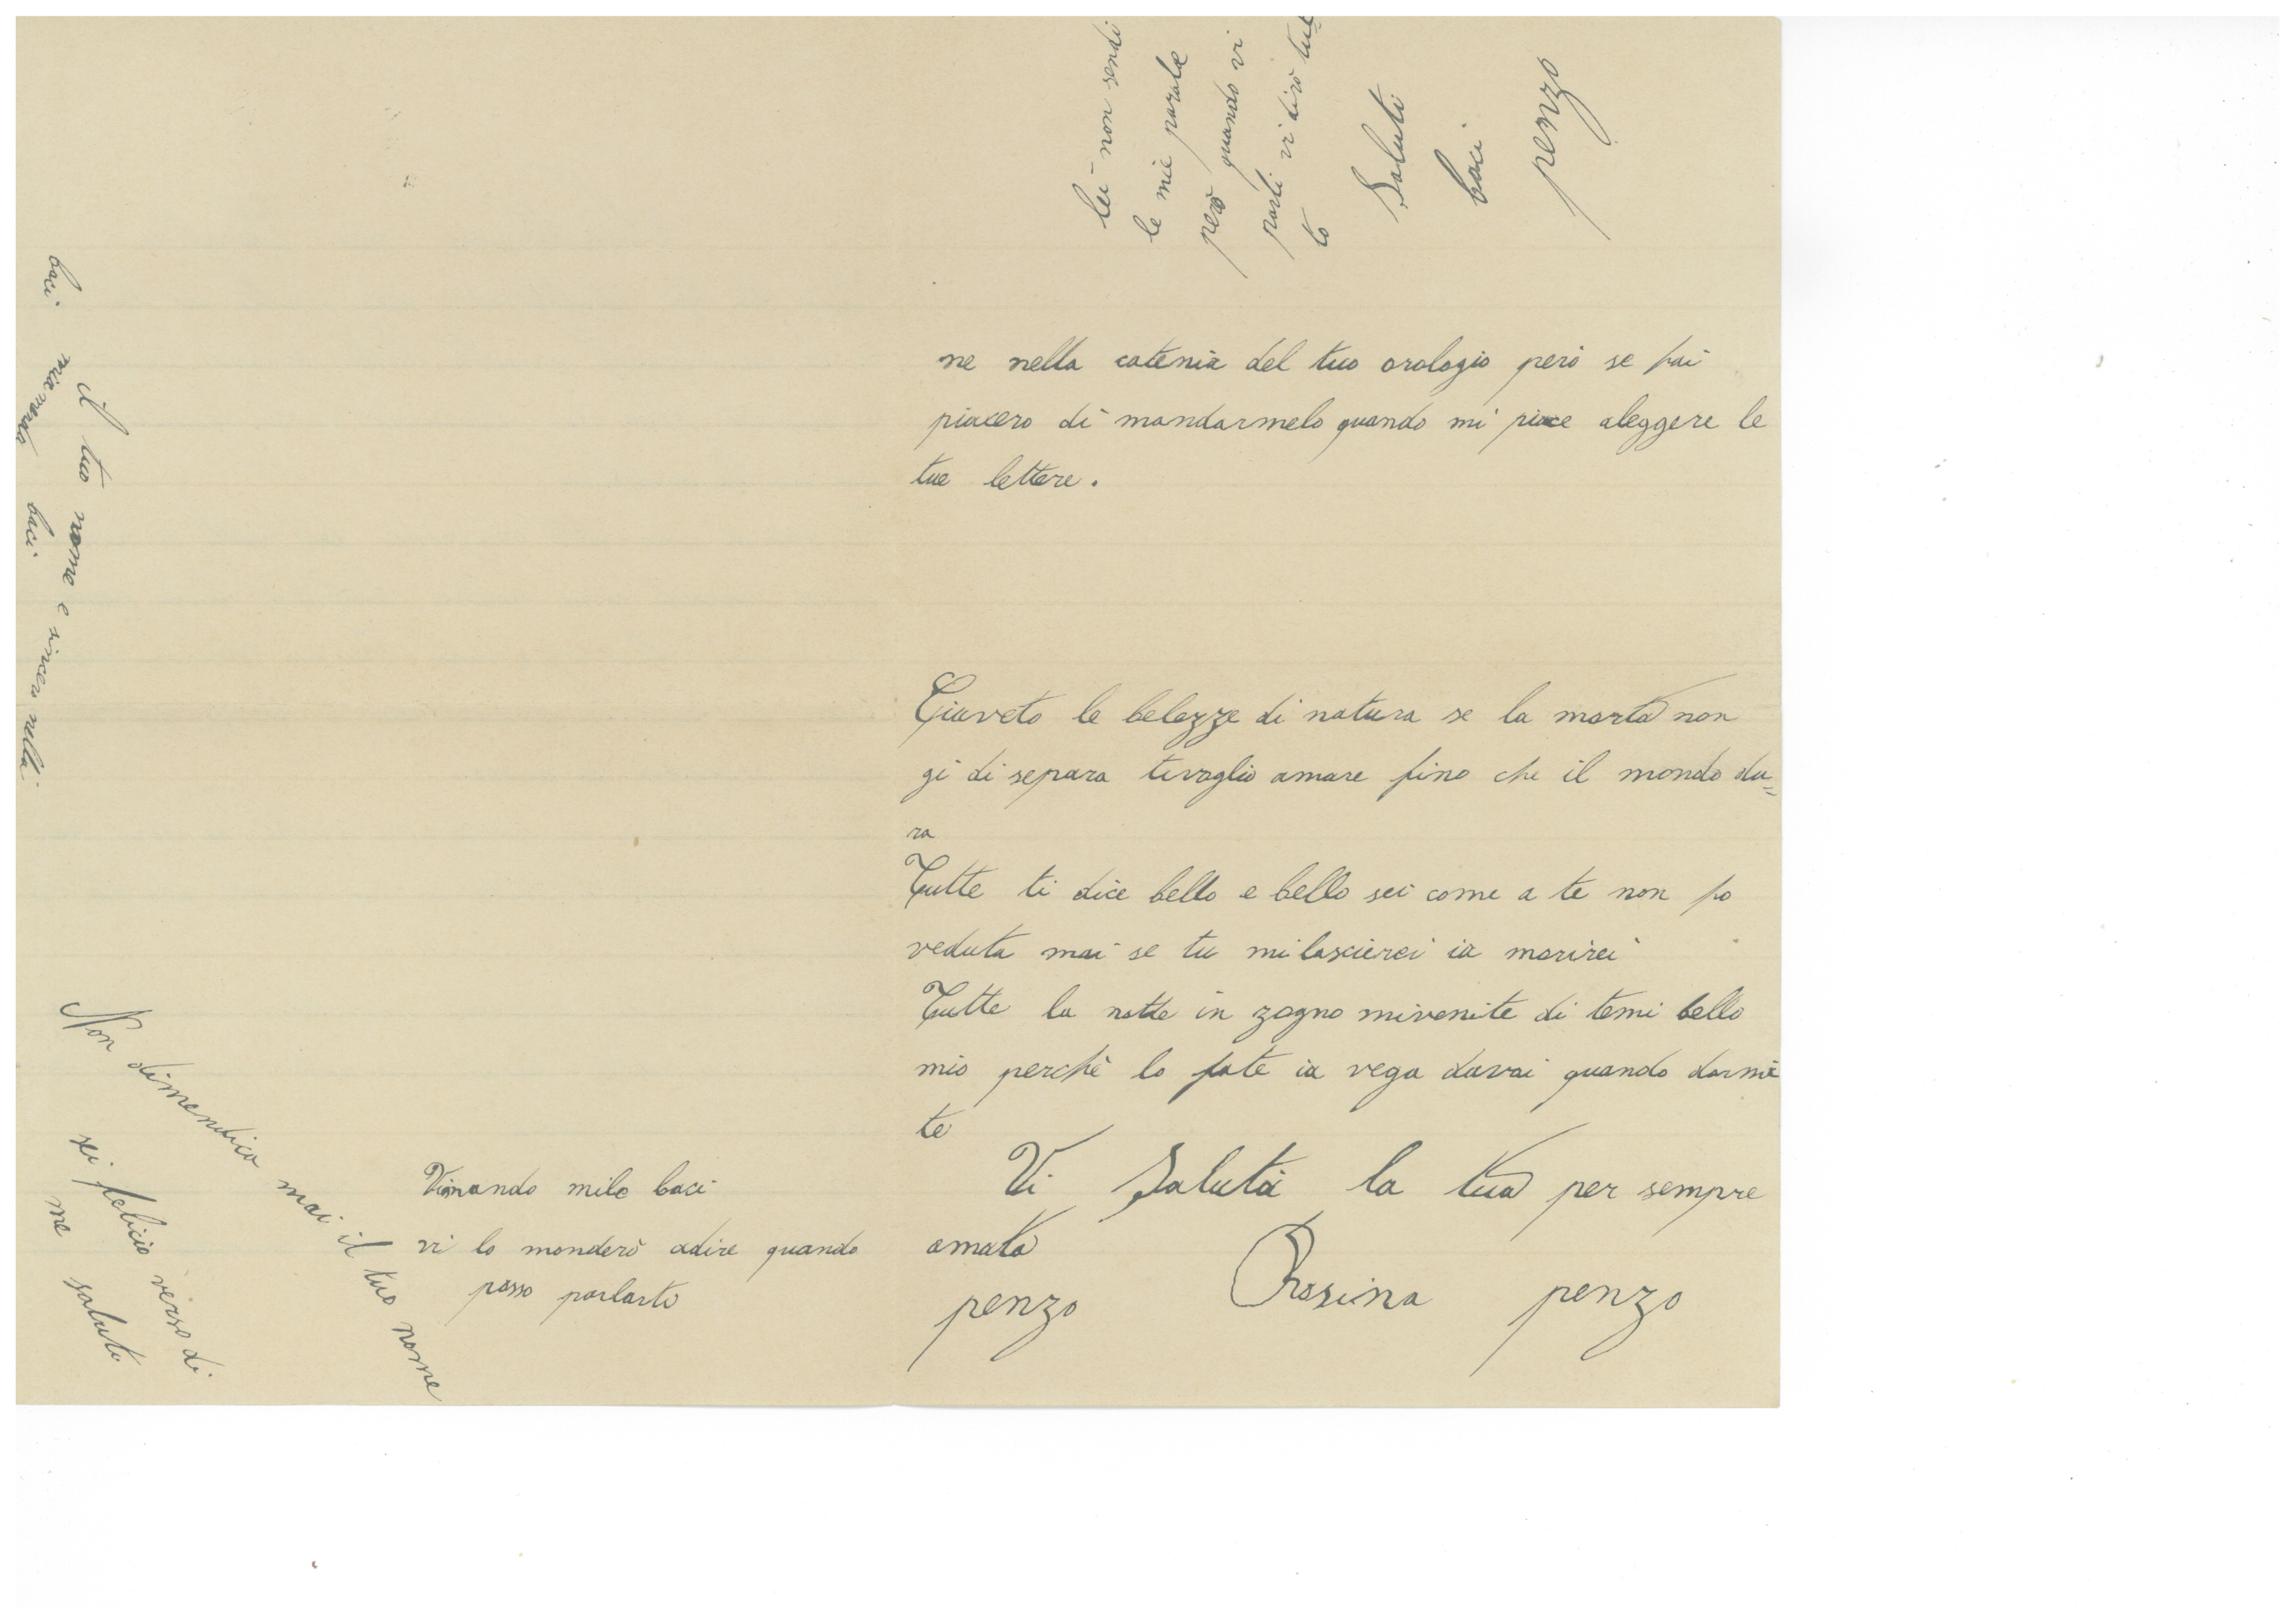 lei non sendi
le mie parole
però quando vi
parli vi dirò tut=
to
Saluti
baci
penzo
ne nella catenia del tuo orologio però se fai
piacero di mandarmelo quando mi piace aleggere le
tue lettere.
le belezze di natura se la morta non
gi di separa tivoglio amare fino che il mondo du=
ra
Tutte ti dice bello e bello sei come a te non fo
veduta mai se tu milascierei ia morirei
Tutte la notte in zogno mivenite di temi bello
mio perchè lo fate ia vega davai quando dormi
te
Vi Saluta la tua per sempre
amata
penzo Rosina penzo
Vimando mile baci
vi lo monderò adire quando
posso parlarti
Non dimentica mai il tuo nome
sei felicio verso di
me saluti
il tuo nome e sincer nella
baci
baci